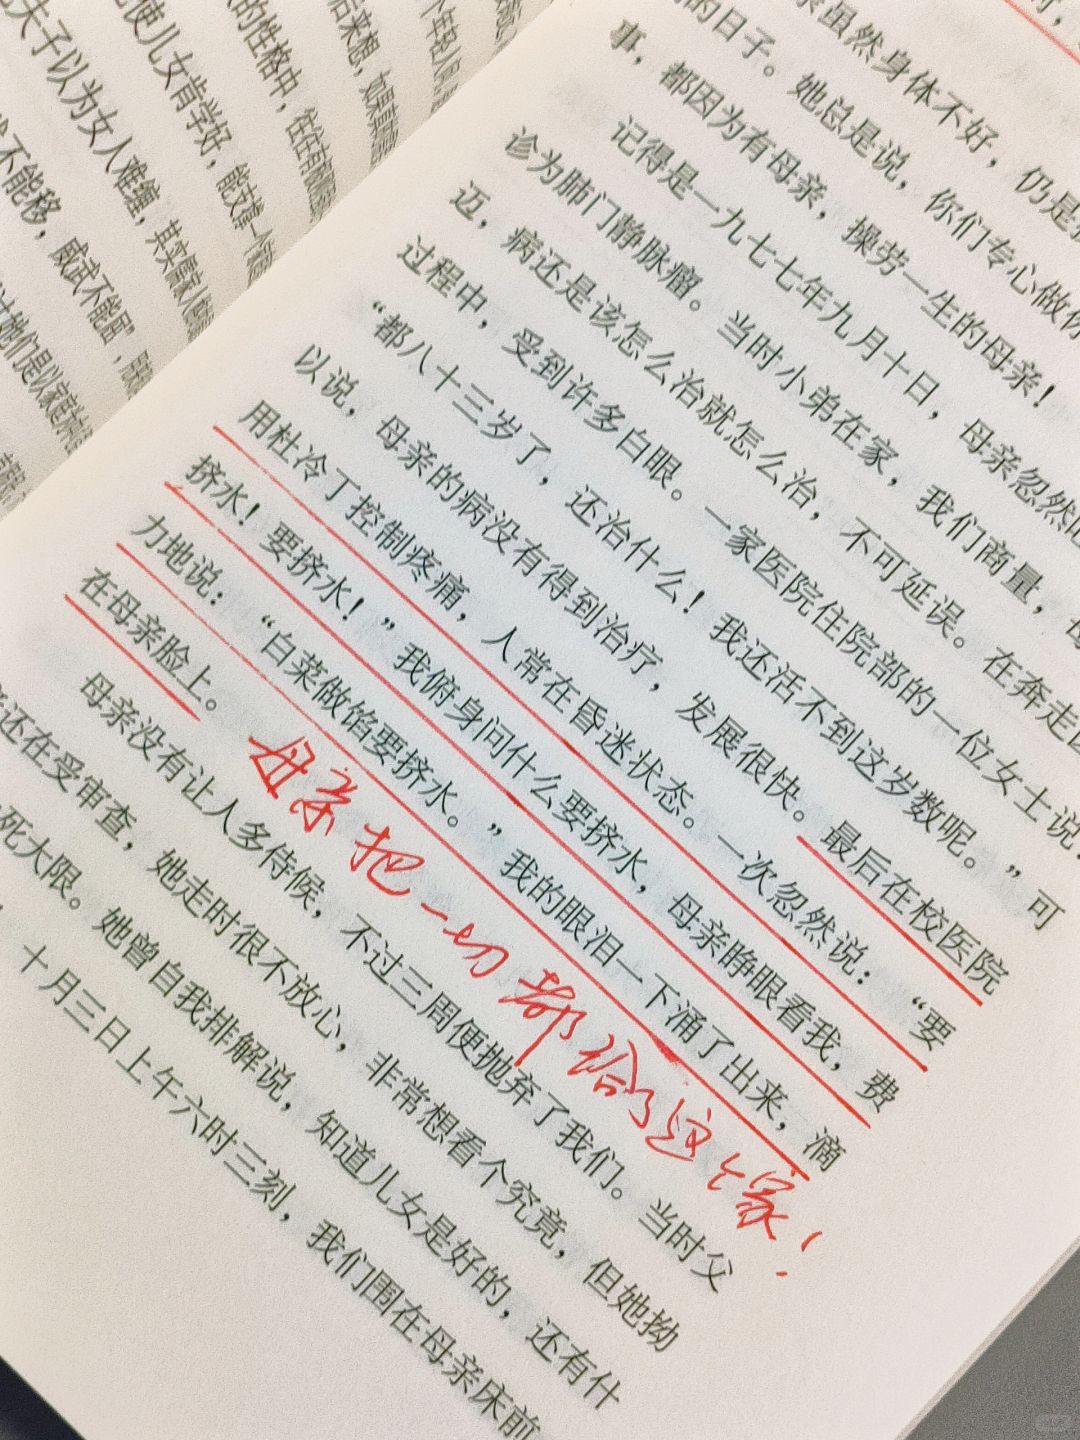 后来想，如果
的性格中，往往有
使儿女肯学好，能支撑一个
夫子以为女人难缠，其实
不能移，威武不能屈”，
她们是以家庭
亲虽然身体不好，仍是
的日子。她总是说，你们专心做你
事，都因为有母亲，操劳一生的母亲！
记得是一九七七年九月十日，母亲忽然
诊为肺门静脉瘤。当时小弟在家，我们商量，母
迈，病还是该怎么治就怎么治，不可延误。在奔走医
过程中，受到许多白眼。一家医院住院部的一位女士说：
“都八十三岁了，还治什么！我还活不到这岁数呢。”可
以说，母亲的病没有得到治疗，发展很快。最后在校医院
用杜冷丁控制疼痛，人常在昏迷状态。一次忽然说：“要
挤水！要挤水！”我俯身问什么要挤水，母亲睁眼看我，费
力地说：“白菜做馅要挤水。”我的眼泪一下涌了出来，滴
在母亲脸上。
母亲把一切都给了这个家！
母亲没有让人多侍候，不过三周便抛弃了我们。当时父
亲还在受审查，她走时很不放心，非常想看个究竟，但她拗
死大限。她曾自我排解说，知道儿女是好的，还有什
十月三日上午六时三刻，我们围在母亲床前